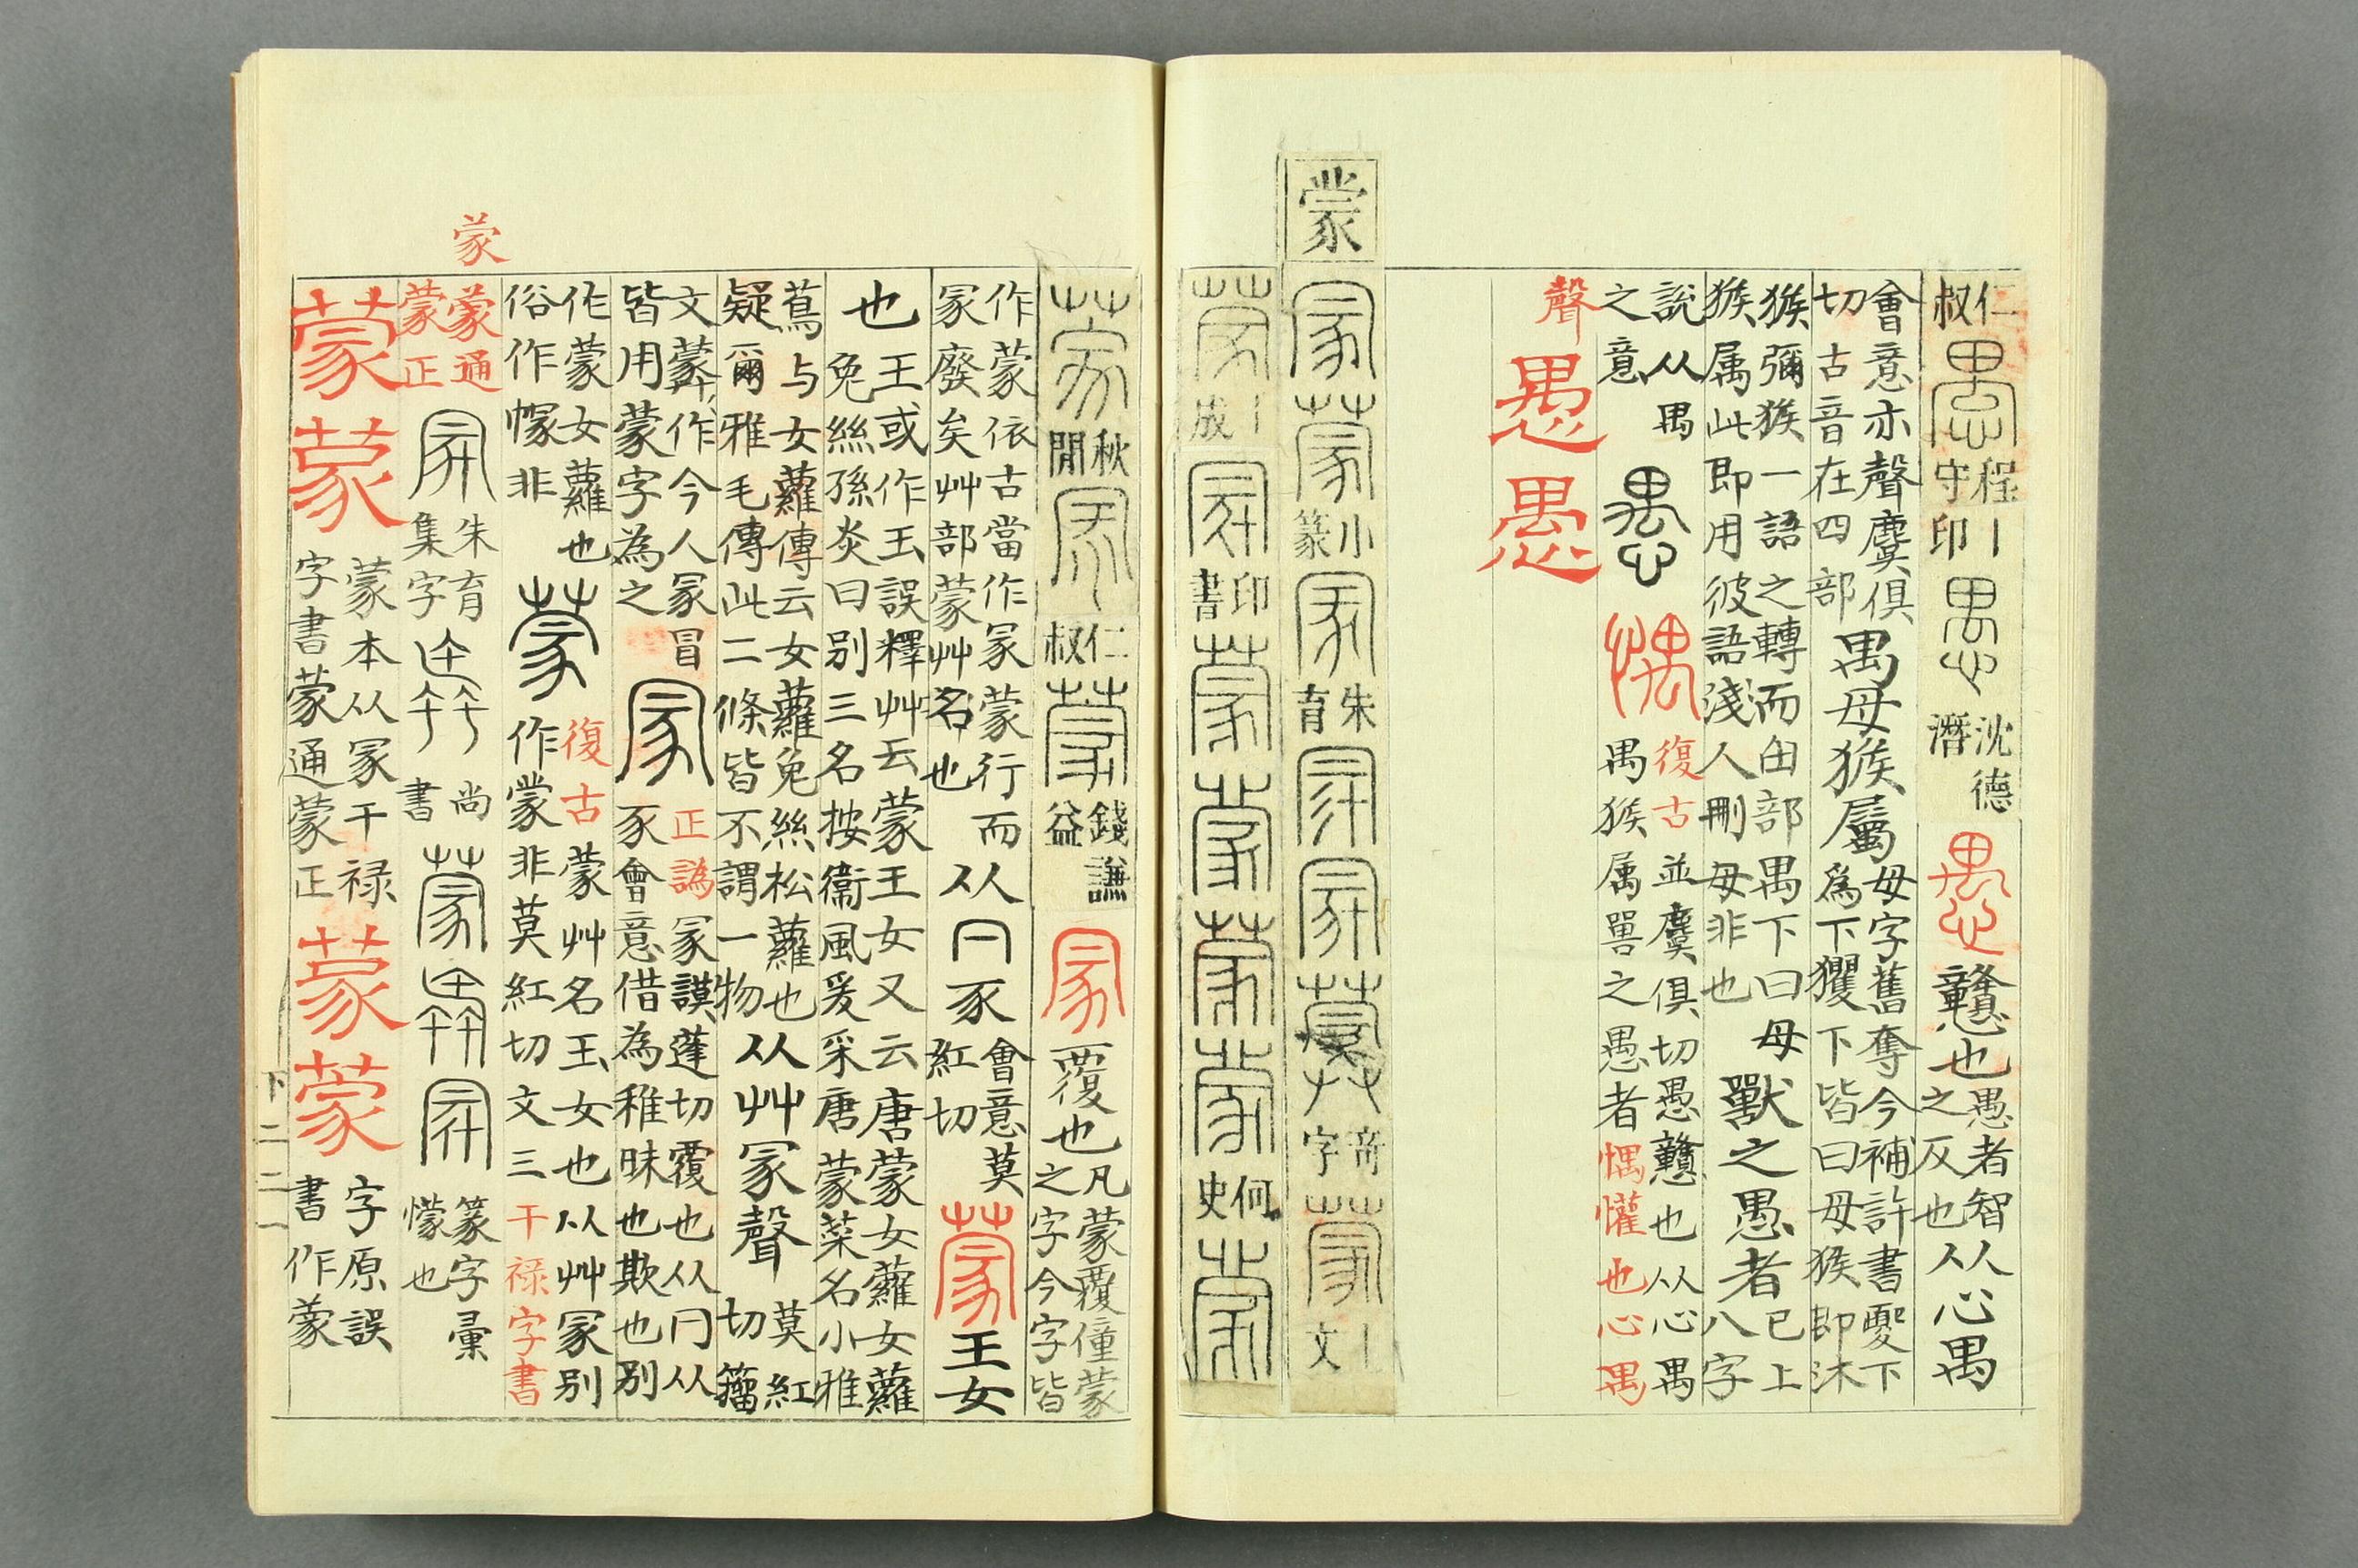 仁叔 愚 程丨守印 愚 沈德潛 愚 戇也 愚者智之反也 从心禺
會意亦聲麌俱切古音在四部 禺母猴屬 母字舊奪今補許書夒下爲下玃下皆曰母猴即沐
猴獼猴一語之轉而由部禺下曰母猴属此即用彼語淺人刪母非也 獸之愚者 已上八字
說从禺之意 愚 惆 復古 並麌俱切愚戇也从心禺禺猴属嘼之愚者 惆懽也心禺
聲 愚 愚
蒙
冡 蒙 小篆 冡 朱育 奇字 蒙 丨文
蒙 丨成 印書 蒙 蒙 蒙 蒙 何史 蒙
秋閒 仁叔 蒙 錢謙益 冡 覆也 凡蒙覆僮蒙之字今字皆
作蒙依古當作冡蒙行而冡廢矣艸部蒙艸名也 从冂豕 會意莫紅切 蒙 王女
也 王或作玉誤釋艸云蒙王女又云唐蒙女蘿女蘿兔絲孫炎曰別三名按衞風爰采唐蒙菜名小雅
蔦与女蘿傳云女蘿兔絲松蘿也疑爾雅毛傳此二條皆不謂一物 从艸冡聲 莫紅切 籀
文 作今人冡冒皆用蒙字為之 冡 正譌 冡謨蓬切覆也从冂从豕會意借為稚昧也欺也別
作蒙女蘿也俗作幏非 蒙 復古 蒙艸名王女也从艸冡別作䝉非莫紅切文三 干禄字書
蒙
蒙通蒙正 朱育集字 尚書 蒙 篆字彙 懞也
蒙 蒙 蒙本从冡干禄字書蒙通蒙正 蒙 蒙 字原誤書作蒙
下二二一